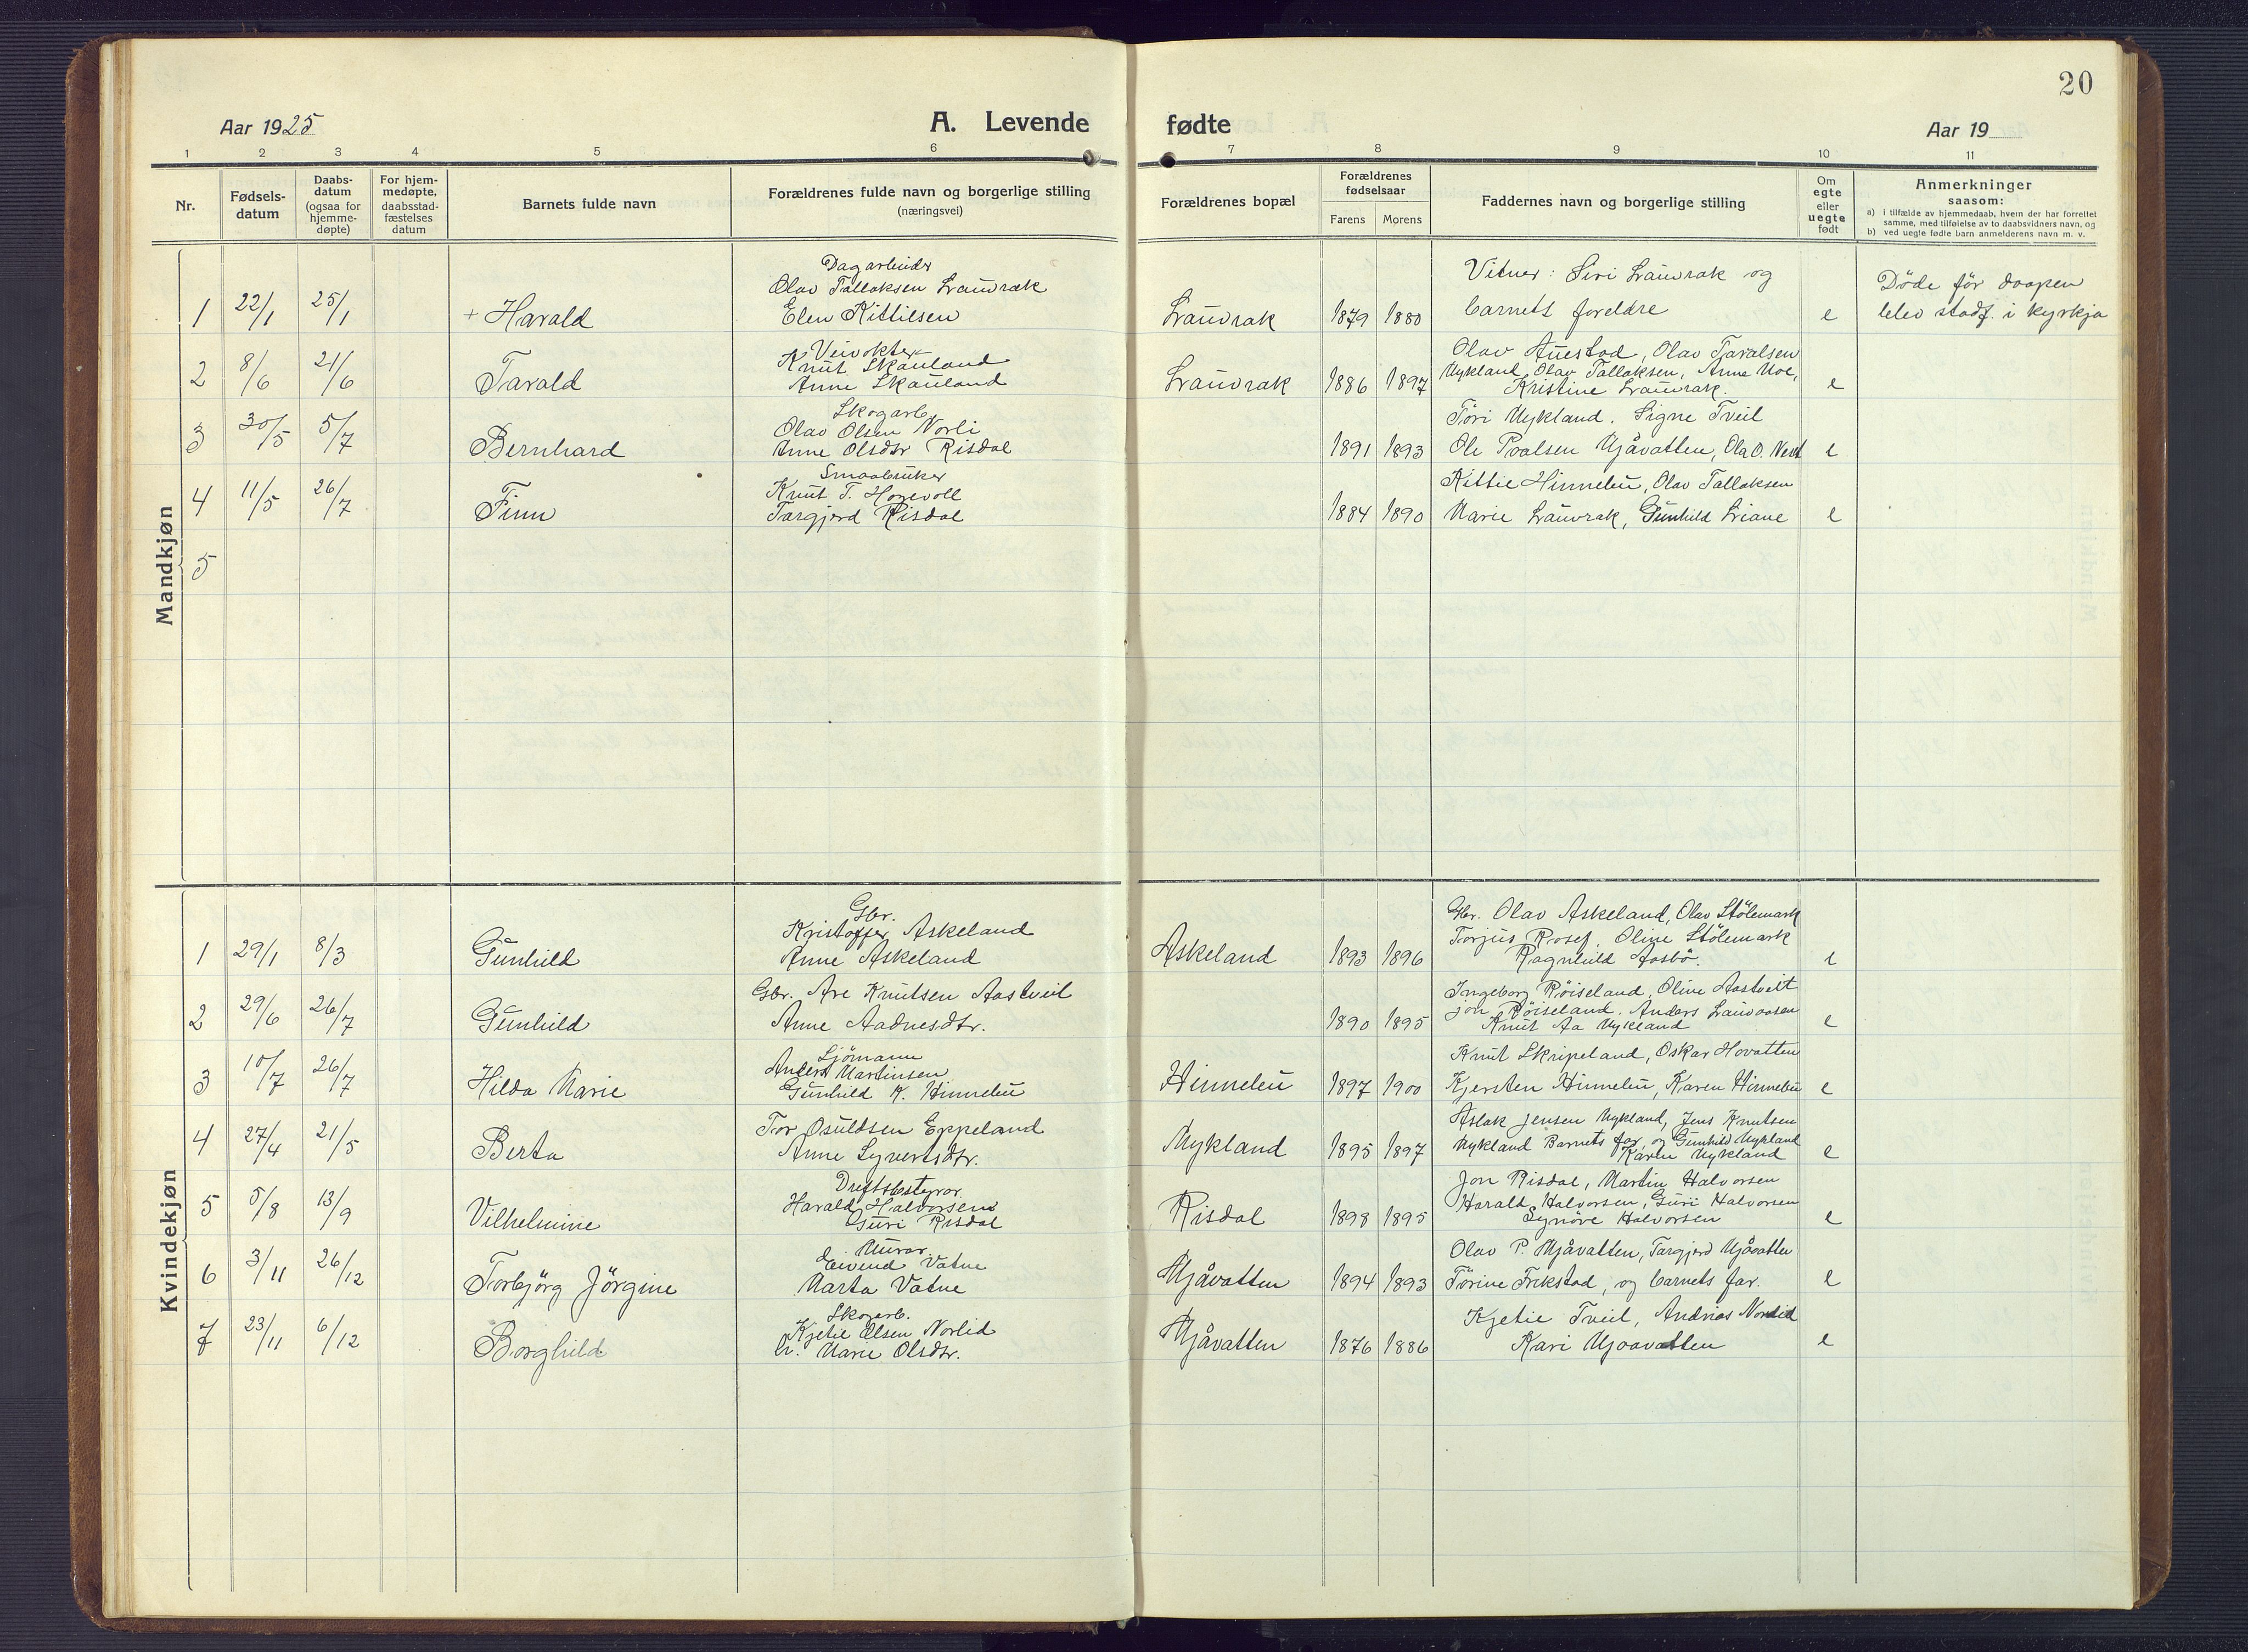 20
Aar 1925
A. Levende fødte
Aar 19
1 2 3 4 5 6 7 8 9 10 11
Nr.
Fødsels-
datum
Daabs-
datum
(ogsaa for
hjemme-
døpte)
For hjem-
medøpte,
daabsstad-
fæstelses
datum
Barnets fulde navn
Forældrenes fulde navn og borgerlige stilling
(næringsvei)
Forældrenes bopæl
Forældrenes
fødselsaar
Farens Morens
Faddernes navn og borgerlige stilling
Om
egte
eller
uegte
født
Anmerkninger
saasom:
a) i tilfælde av hjemmedaab, hvem der har forrettet
samme, med tilføielse av to daabsvidners navn, og
b) ved uegte fødte barn anmelderens navn m. v.
Mandkjøn
Dagarbeider
Olav Tallaksen Lauvrak
Elen Kittilsen
1 22/1 25/1 + Harald
Lauvrak 1879 1880
Vitner: Siri Lauvrak og
barnets foreldre
e
Döde för daapen
blev stadf. i kyrkja
Veivokter
Knut Skauland
Anne Skauland
2 8/6 21/6 Tarald
Lauvrak 1886 1897
Olav Auestad, Olav Taralsen
Mykland, Olav Tallaksen, Anne Moe,
Kristine Lauvrak.
e
Skogarb.
Olav Olsen Norli
Anne Olsdtr Risdal
3 30/5 5/7 Bernhard
1891 1893
Töri Mykland. Signe Tveit
Ole Poalsen Mjåvatten, Ola O.
e
Smaabruker
Knut T. Hogevoll
Targjerd Risdal
4 11/5 26/7 Finn
1884 1890
Kittil Hinnebu, Olav Tallaksen
Marie Lauvrak, Gunhild Liane
e
5
Kvindekjøn
Gbr.
Kristoffer Askeland
Anne Askeland
1 29/1 8/3 Gunhild
Askeland 1893 1896
Gbr. Olav Askeland, Olav Stölemark
Torjus Rosef, Oline Stölemark
Ragnhild Aasbö.
e
Gbr. Are Knutsen Aastveit
Anne Aadnesdtr.
2 29/6 26/7 Gunhild
1890 1895
Ingeborg Röiseland, Oline Aastveit
Jon Röiseland. Anders Lauvaasen
Knut Aa Mykland
e
Sjömann
Anders Martinsen
Gunhild K. Hinnebu
3 10/7 26/7 Hilda Marie
Hinnebu 1897 1900
Knut Skripeland, Oskar Hovatten
Kjersten Hinnebu, Karen Hinnebu
e
Tor Osuldsen Eppeland
Anne Syvertsdtr.
4 27/4 21/5 Berta
Mykland 1895 1897
Aslak Jensen Mykland, Jens Knutsen
Mykland Barnets far, og Gunhild Mykland
Karen Mykland
e
Driftsbstyrar
Harald Halvorsen
Guri Risdal
5 5/8 13/9 Vilhelmine
Risdal 1898 1895
Jon Risdal, Martin Halvorsen
Harald Halvorsen, Guri Halvorsen
Synöve Halvorsen
e
Murar.
Eivind Vatne
Marta Vatne
6 3/11 26/12 Torbjörg Jörgine
Mjåvatten 1894 1893
Olav P. Mjåvatten, Targjerd Mjåvatten
Törine Frikstad, og barnets far.
e
Skogarb.
Kjetil Olsen Norlid
Marie Olsdtr.
7 23/11 6/12 Borghild
Mjåvatten 1876 1886
Kjetil Tveit, Andrias Norlid
Kari Mjaavatten
e